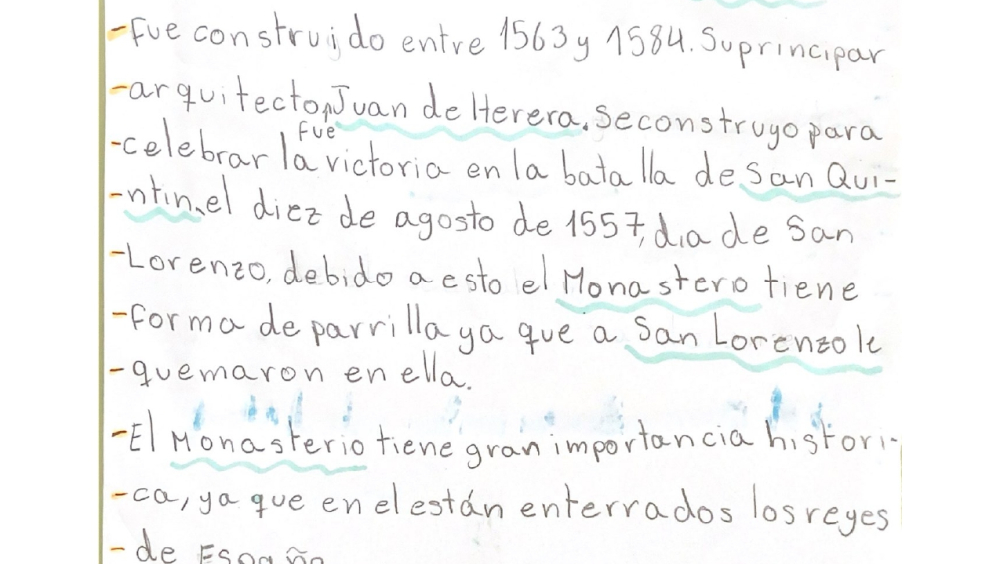 -Fue construido entre 1563 y 1584. Su principar
-arquitecto, Juan de Herera. Se construyo para
fue
-celebrar la victoria en la batalla de San Qui-
-ntin, el diez de agosto de 1557, dia de San
-Lorenzo, debido a esto el Monastero tiene
-forma de parrilla ya que a San Lorenzo le
-quemaron en ella.
-El Monasterio tiene gran importancia histori-
-ca, ya que en el están enterrados los reyes
-de España